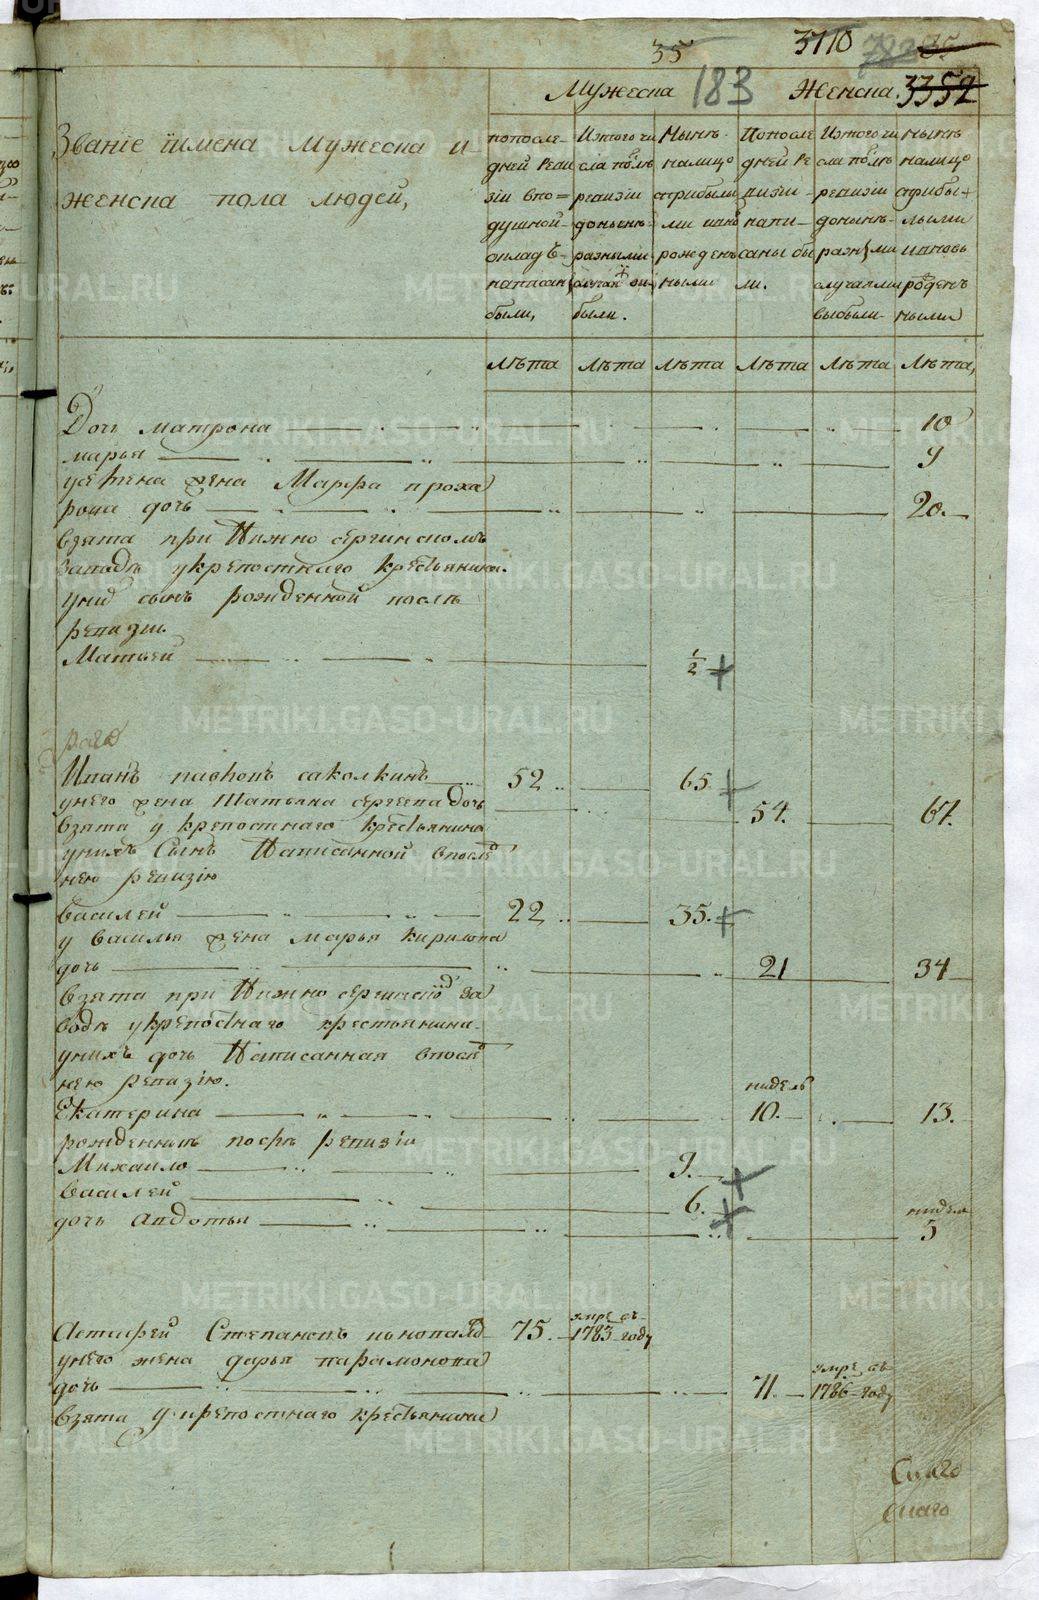 35 3110
183
3352
Мужеска Женска
Званіе іимена Мужеска и
женска пола людей,
попосле-
дней реви
зіи впо=
душной
окладъ
написан
были,
Изтого чи
сла послъ
ревизіи
донынъ
разными
случаи вы
были.
Нынъ
налицо
сприбылы
ми ивнов
рожденъ
ными
Попосле
дней ре
визіи
напи-
саны бы
ли.
Изтого чи
сла послъ
ревизіи
донынъ-
разными
случаями
выбыли
нынъ
налицо
сприбы-
лыми
ивновь
рожден
ными
лъта лъта лъта лъта лъта лъта,
Дочь матрона 10
марья 9
жена Марфа проха
рова дочь 20.
взята при Нижно сергинскомъ
заводъ укрепостнаго крестьянина.
унихъ сынъ рожденной послъ
ревизіи.
Матвей 1/2
Иванъ павловъ саколкинъ 52 65
унего жена Татьяна сергеева дочь 54. 67.
взята укрепостнаго крестьянина
унихъ Сынъ Написанной впослъд
нею ревизію
Василей 22 35.
у василья жена марья кирилова
дочь 21 34
взята при Нижно сергинском за
водъ укрепостнаго крестьянина
унихъ дочь Написанная впослъд
нею ревизію. нидель
Екатерина 10. 13.
рожденныя послъ ревизіи
Михаило 9.
Василей 6. нидель
дочь Авдотья 5
Степановъ 75. умре въ 1783 году
унего жена дарья парамонова
дочь 71. умре въ 1786 году
взята укрепостнаго крестьянина
METRIKI.GASO-URAL.RU